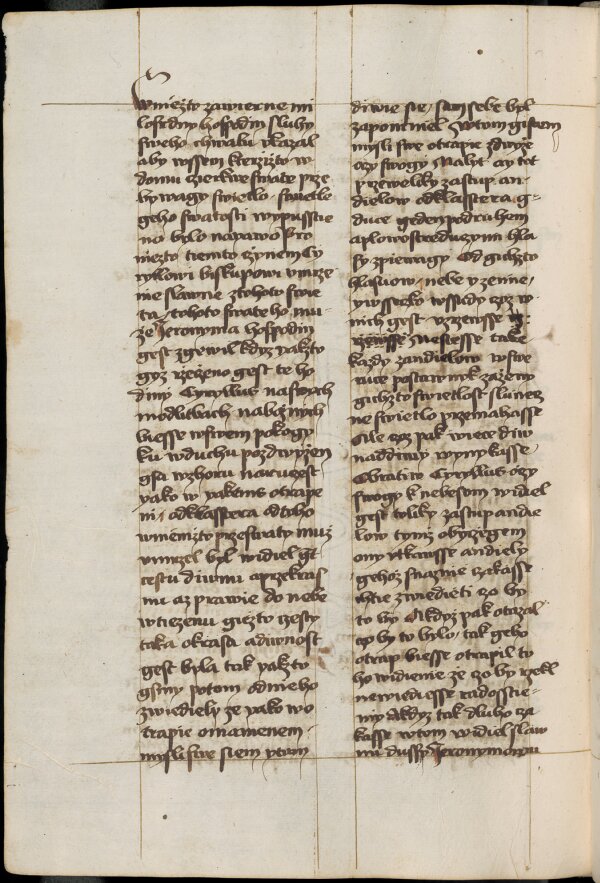 w niezto zawierne mi
losrdny hospodin sluhy
sweho chwalu vkazal
aby wssem kterzizto w
domu czierkwe swate prze
bywagy swietlo swietle
geho swatosti wypusstie
no bylo napawo Pro
niezto tiemto czynem Cy
ryllowi biskupowi v mrze
nie slawne z tohoto swie
ta tohoto swateho mu
ze Jeronyma hospodin
gest zgewil kdyz yakzto
gyz rzeczeno gest te ho
diny Cyryllus na swych
modlitbach naboznych
biesse w swem pokogy
ku w duchu pozdwyzen
gsa wzhoru nawczest
yako w yakems otrape
ni od klasstera odtcho
w niemzto przeswaty muz
vmrzel byl widiel gt
cestu diwnu a przekras
nu az prawie do nebe
wtiezenu giezto czesty
taka okrasa a diwnost
gest byla tak yakzto
gsmy potom od nieho
zwiediely ze yako w o
trapie omamenem
mysli swe siem y tam
diwie sie sam sebe byl
zapomniel W tom gistem
mysli swe otrapie zdwyze
oczy swogy Naht ay tot
przeweliky zastup an
dielow od klasstera g
duce geden podruhem
a plowostreduczymi hla
sy zpiewagy Od gichzto
hlasuow nebe y zemie
y wsseczko wssudy czoz w
nich gest wzrzewsse
rzewsse Niesiesse take
kazdy z andielow w swe
ruce postawnyk zazzeny
gichzto swietlost slunecz
ne swietlo przemahasse
Ale czoz pak wiece diw
nad diwy wynykasse
Obratiw Cyryllus oczy
swogy k nebesom widiel
gest toliky zastup andie
low tymz obyczegem
ony vtkawsse andiely
gehoz snaznie czekasse
chtie zwiedieti czo by
to by A kdyz pak otazal
czo by to bylo tak geho
otrap biesse otrapil to
ho widienie ze czo by rzekl
newiediesse radosstie
my A kdyz tak dluho cza
kasse w tom widiel slaw
nu dussy Jeronymowu